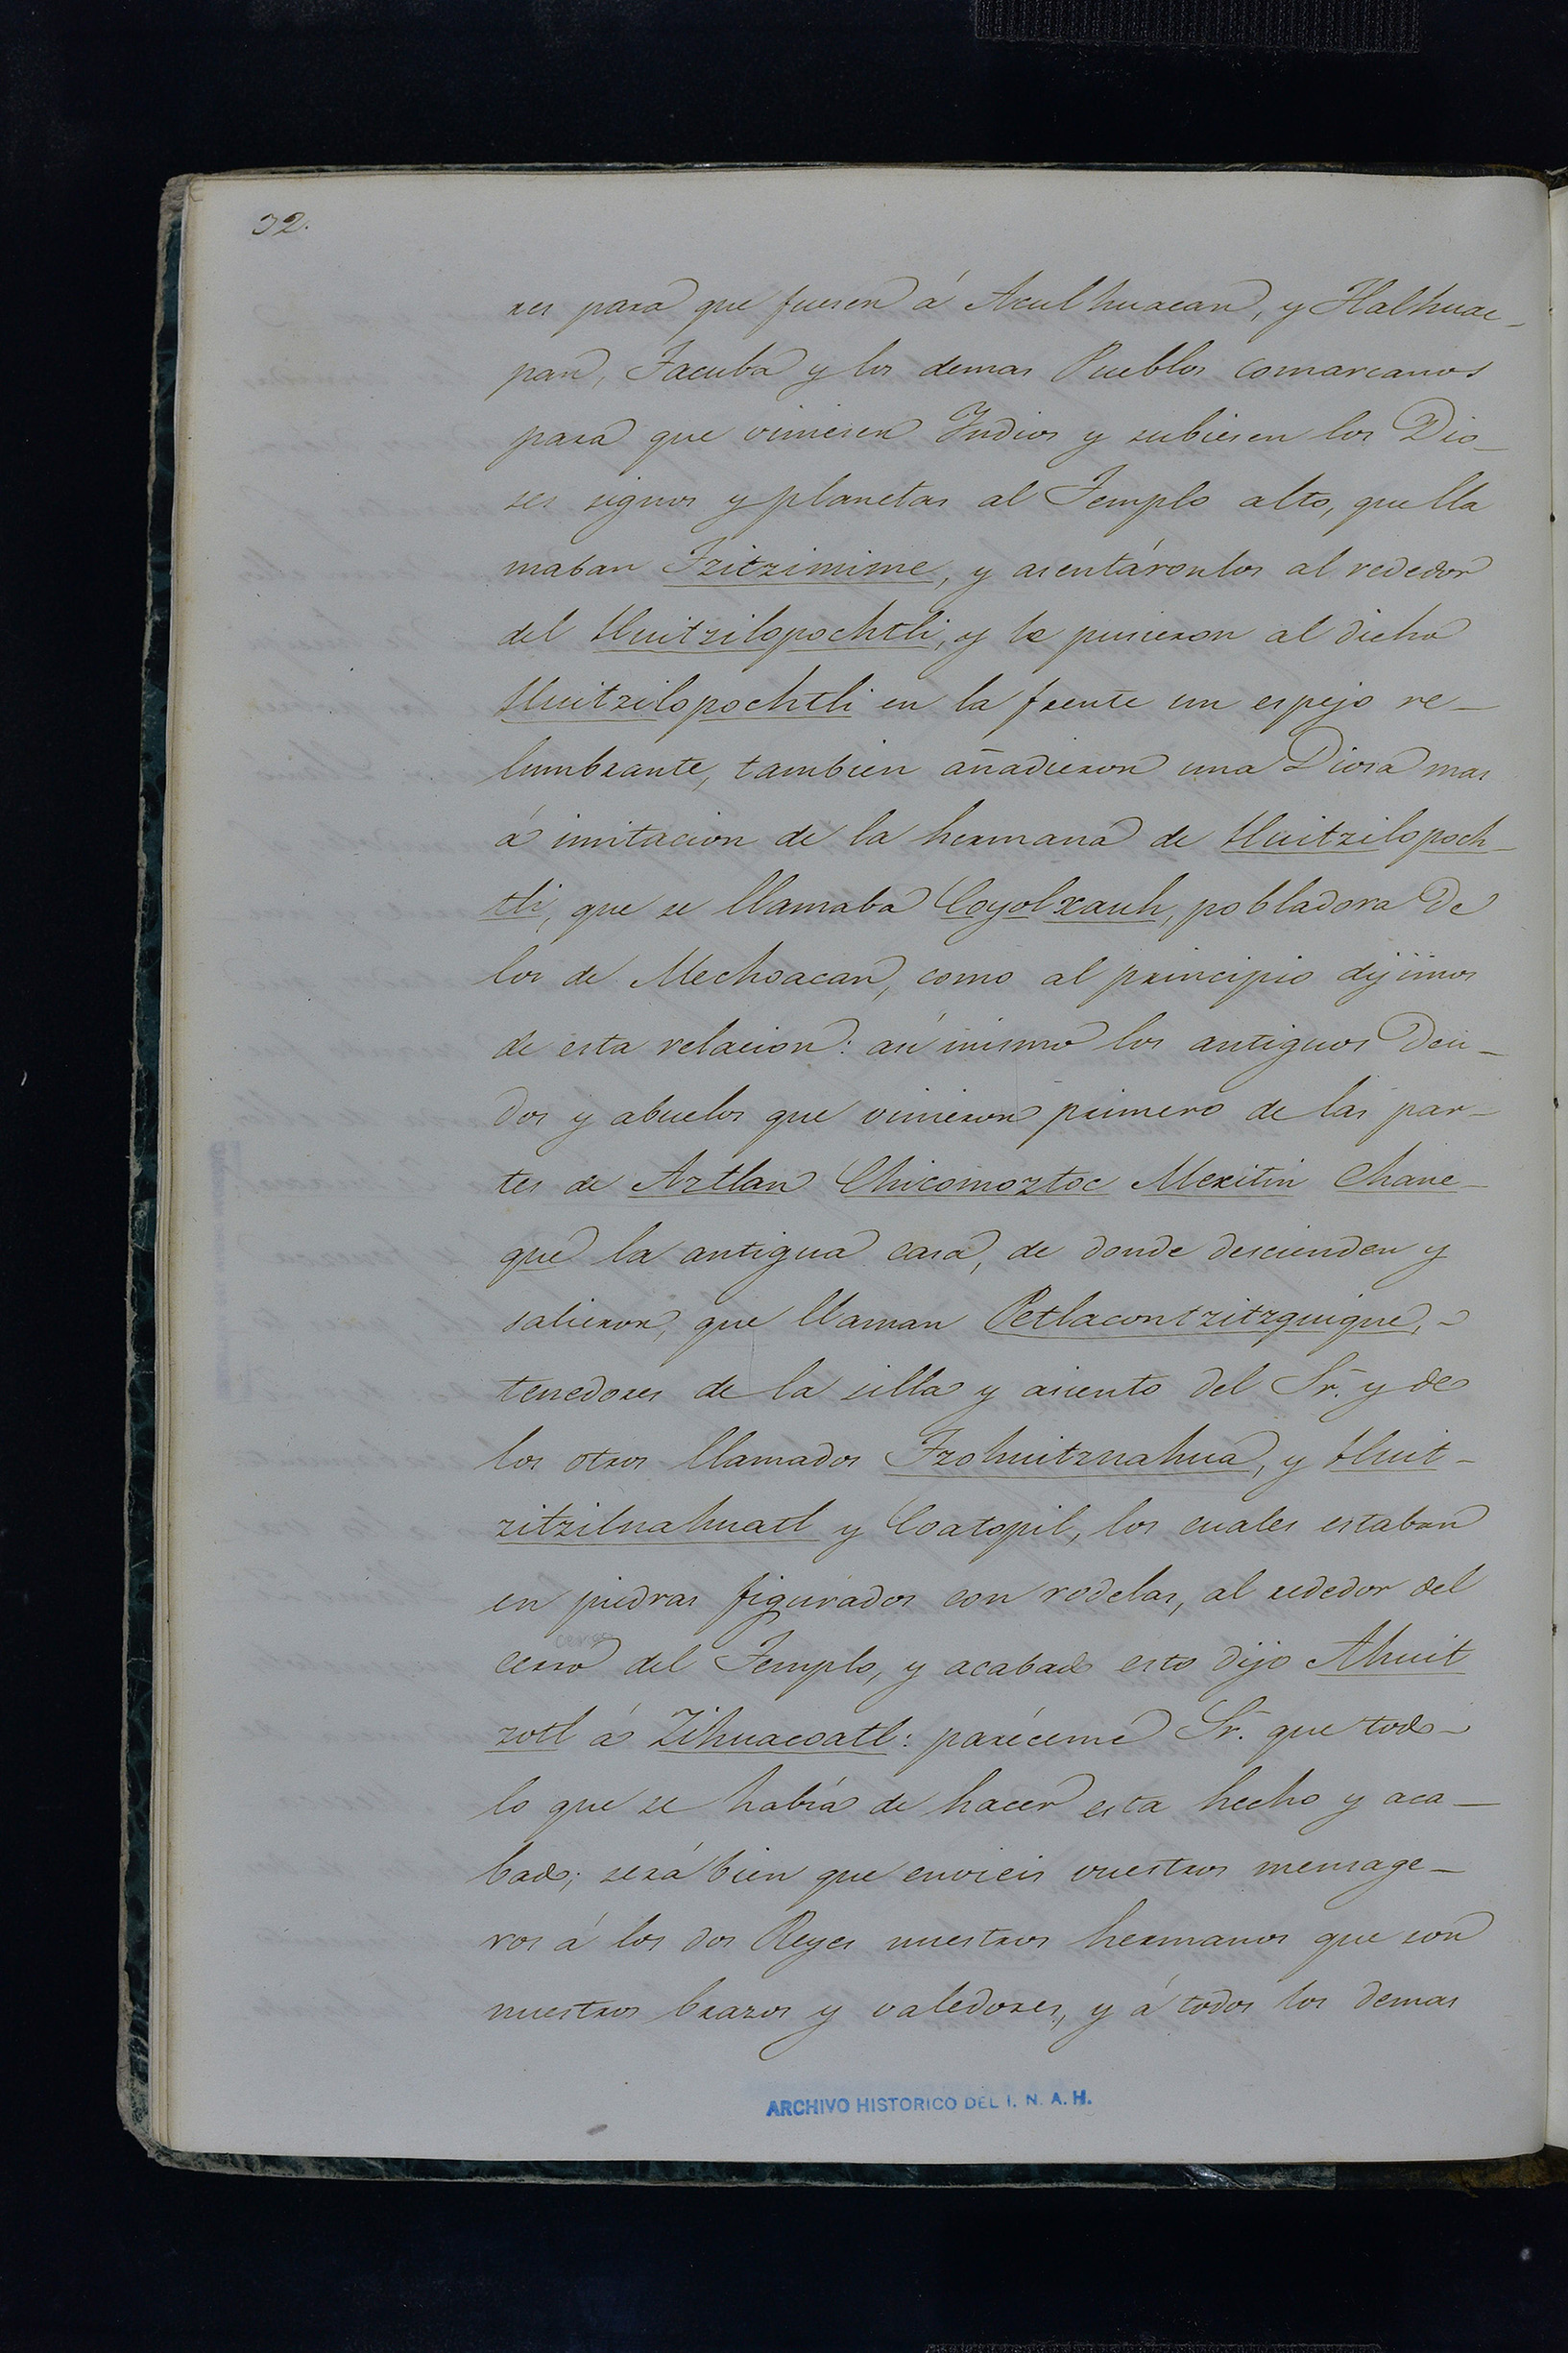 32.
res para que fuesen á Aculhuacan, y Tlalhuac-
pan, Tacuba y los demas Pueblos comarcanos
para que viniesen Indios y subiesen los Dio-
ses signos y planetas al Templo alto, que lla
maban Tzitzimime, y asentáronlos al rededor
del Huitzilopochtli, y le pusieron al dicho
Huitzilopochtli en la frente un espejo re-
lumbrante, tambien añadieron una Diosa mas
á imitacion de la hermana de Huitzilopoch-
tli, que se llamaba Coyolxauh, pobladora de
los de Mechoacan, como al principio dijimos
de esta relacion: asi mismo los antiguos Deu-
dos y abuelos que vinieron primero de las par-
tes de Aztlan Chicomoztoc Mexitin Chane-
que la antigua casa, de donde descienden y
salieron, que llaman Petlacontzitzquique, -
tenedores de la silla y asiento del Sr. y de
los otros llamados Tzohuitznahua, y Huit-
zitzilnahuatl y Coatopil, los cuales estaban
en piedras figurados con rodelas, al rededor del
cerco
cerro del Templo, y acabado esto dijo Ahuit
zotl á Zihuacoatl: paréceme Sr. que todo
lo que se habia de hacer esta hecho y aca-
bado; será bien que envieis vuestros mensage-
ros á los dos Reyes nuestros hermanos que son
nuestros brazos y valedores, y á todos los demas
ARCHIVO HISTORICO DEL I. N. A. H.